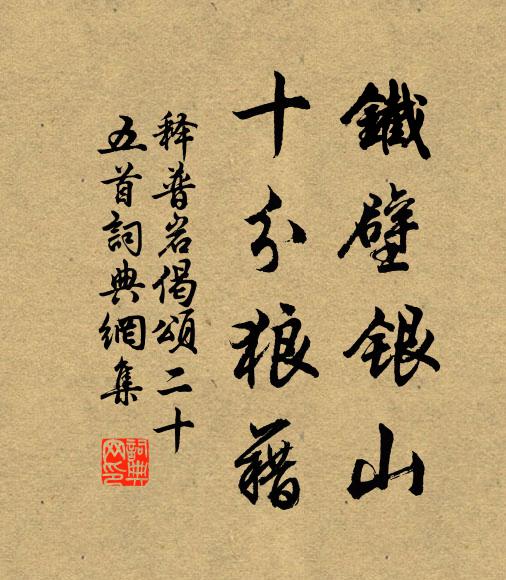 鐵壁銀山
十分狼藉
释普岩偈頌二十
五首詞典網集
詞典网印